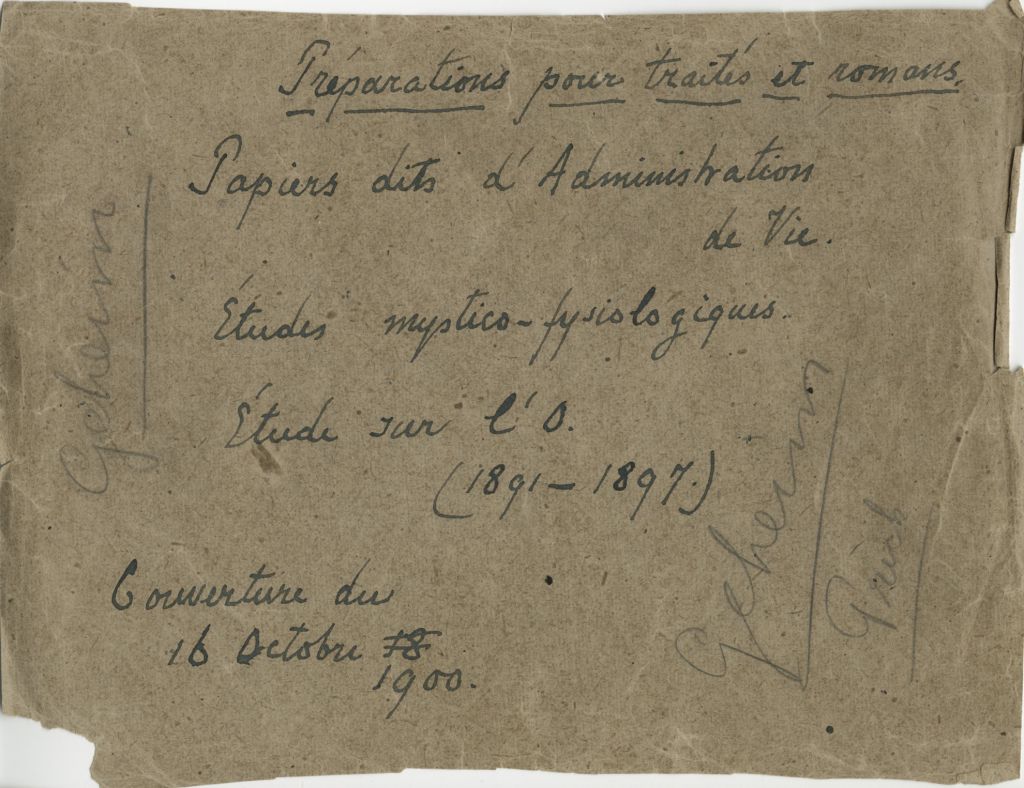 Préparations pour traités et romans.
Papiers dits d'Administration
de Vie.
Études mystico-fysiologiques.
Étude sur l'O.
(1891-1897.)
Couverture du
16 Octobre 18
1900.
Geheim
Geheim